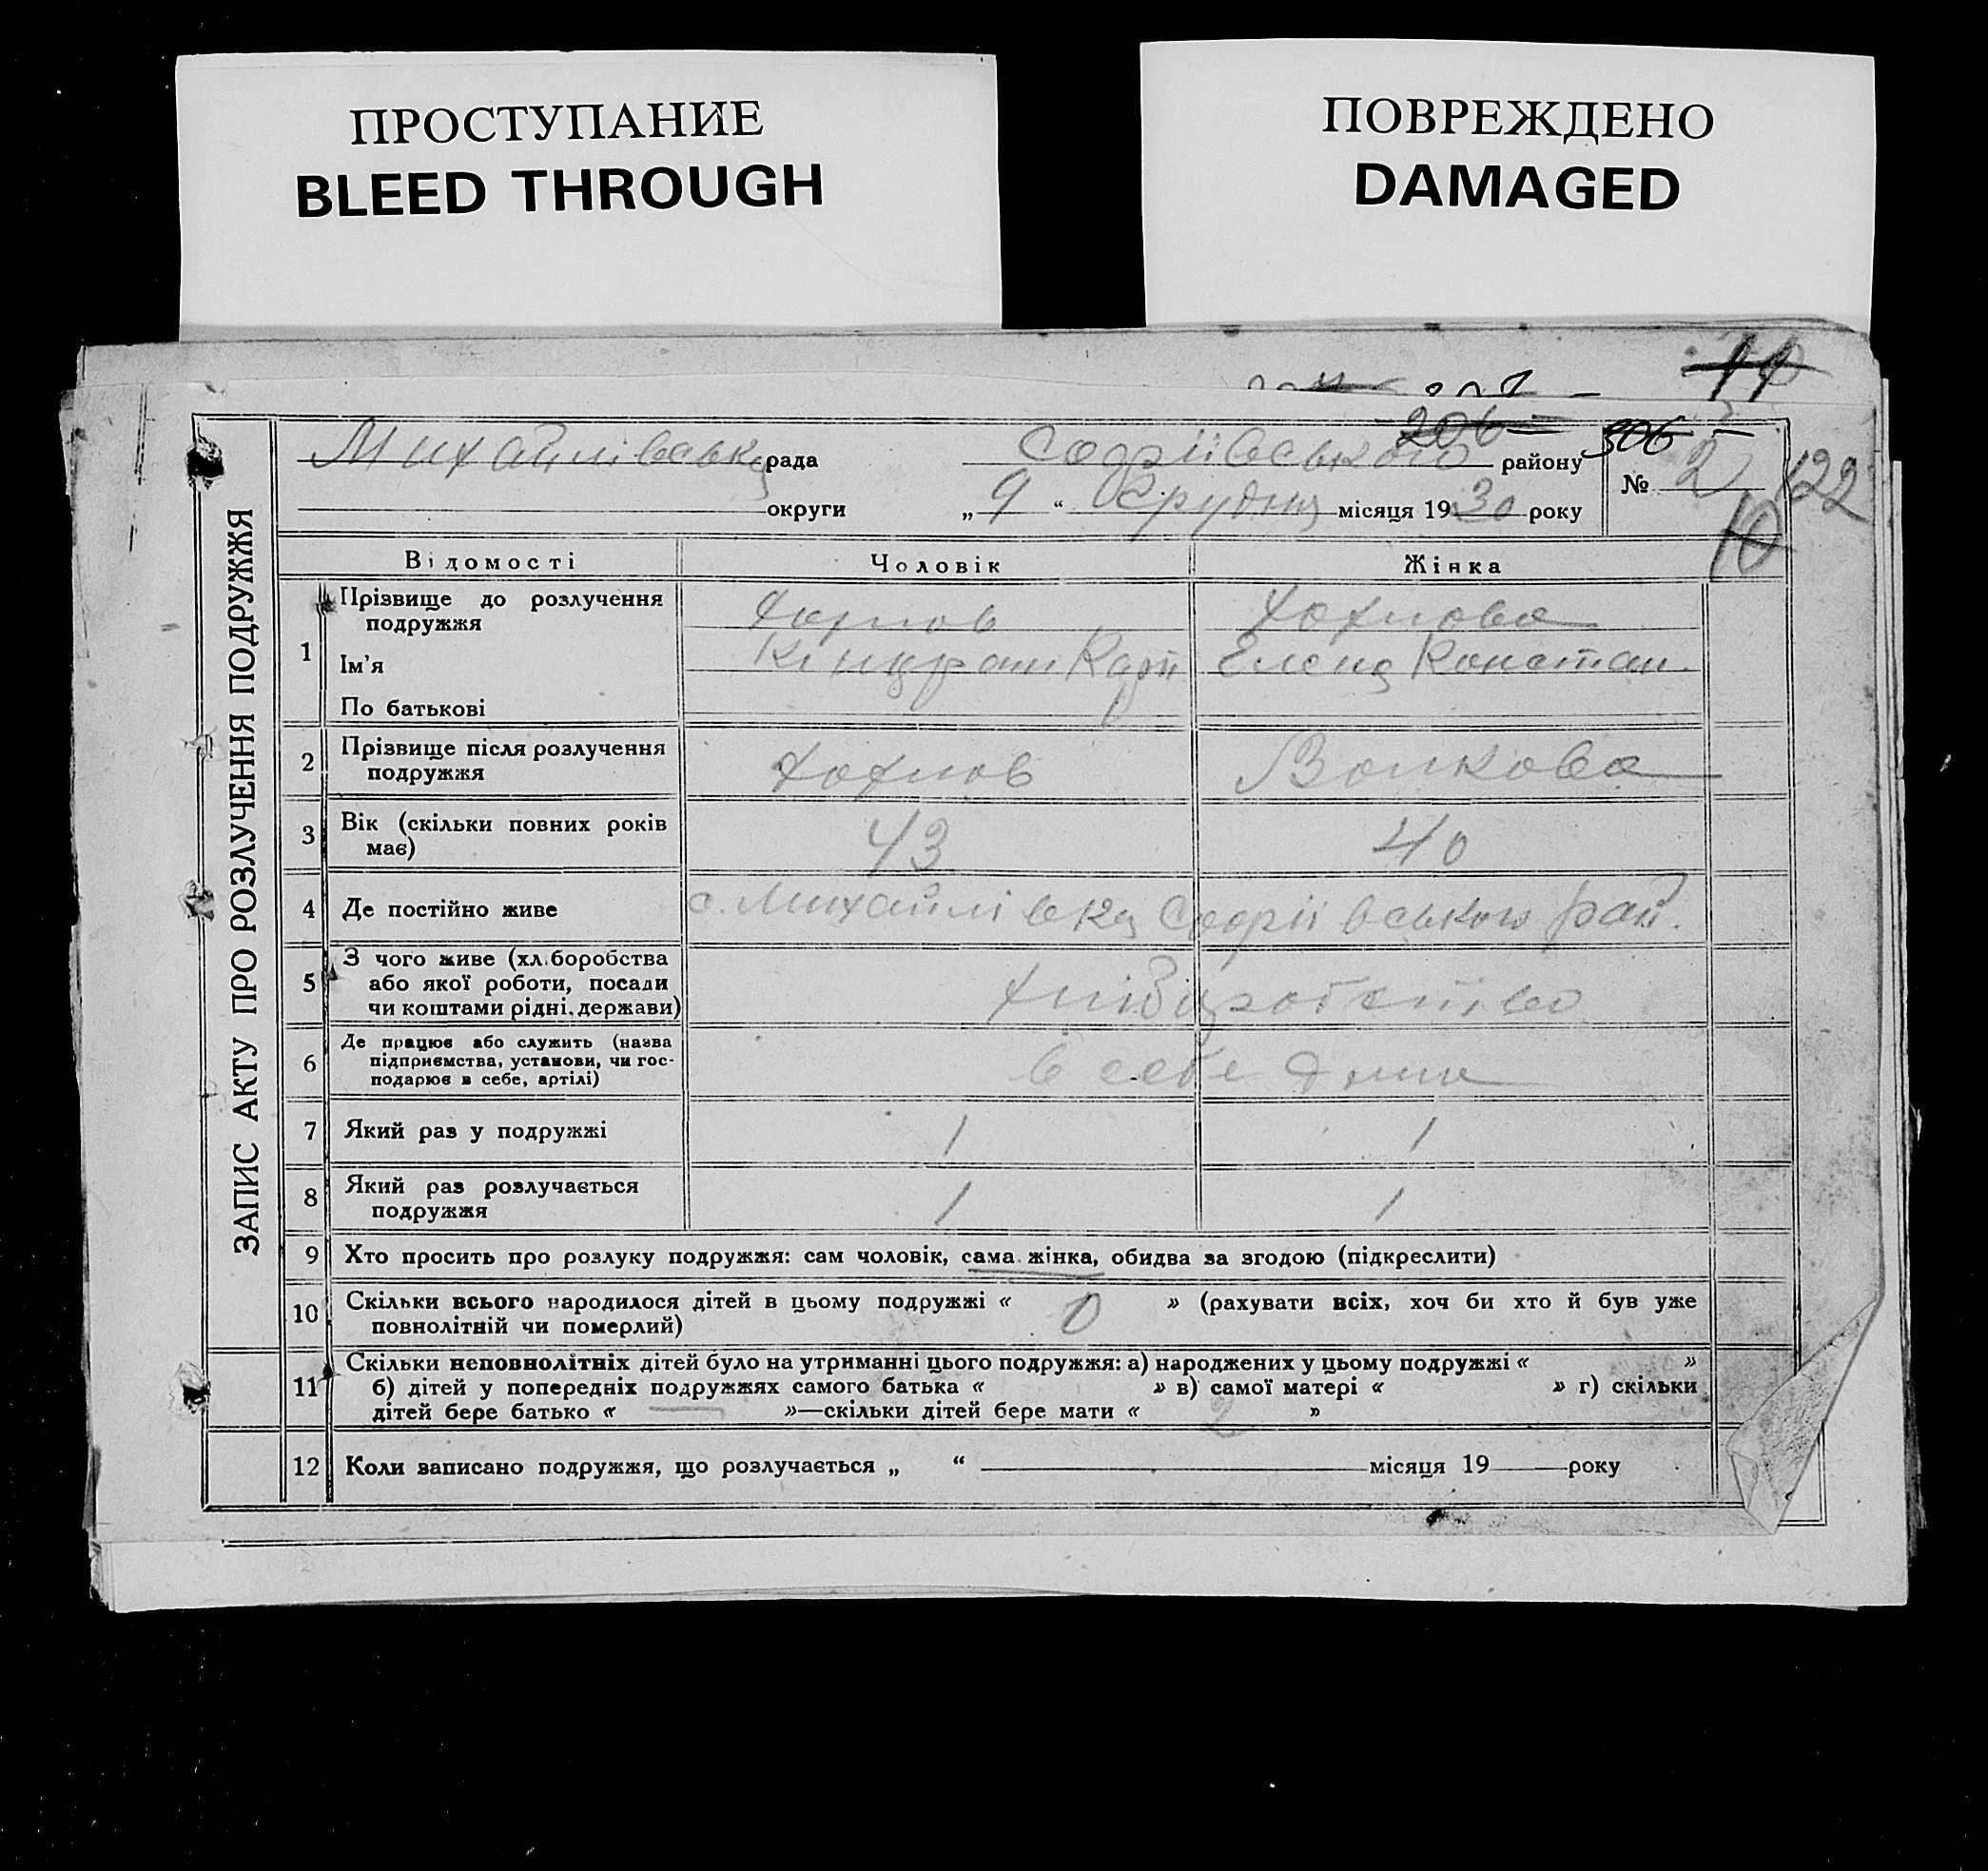 ПРОСТУПАНИЕ
BLEED THROUGH
ПОВРЕЖДЕНО
DAMAGED
11
206
306
Михайлівська рада района району № 2 122
округи „ 9 “ Грудня місяця 19 30 року
10
ЗАПИС АКТУ ПРО РОЗЛУЧЕННЯ ПОДРУЖЖЯ
Відомості Чоловік Жінка
1 Прізвище до розлучення Хохлов Хохлова
подружжя
Ім’я Елена Констан.
По батькові
2 Прізвище після розлучення Хохлов Волкова
подружжя
3 Вік (скільки повних років 43 40
має)
4 Де постійно живе с. Михайлівка рай.
5 З чого живе (хл.боробства
або якої роботи, посади
чи коштами рідні. держави)
6 Де працює або служить (назва в себе дома
підприємства, установи, чи гос-
подарює в себе, артілі)
7 Який раз у подружжі 1 1
8 Який раз розлучається 1 1
подружжя
9 Хто просить про розлуку подружжя: сам чоловік, сама жінка, обидва за згодою (підкреслити)
10 Скільки всього народилося дітей в цьому подружжі « 0 » (рахувати всіх, хоч би хто й був уже
повнолітній чи померлий)
11 Скільки неповнолітніх дітей було на утриманні цього подружжя: а) народжених у цьому подружжі « »
б) дітей у попередніх подружжях самого батька « » в) самої матері « » г) скільки
дітей бере батько « — »—скільки дітей бере мати « 2 »
12 Коли записано подружжя, що розлучається „ “ місяця 19 року